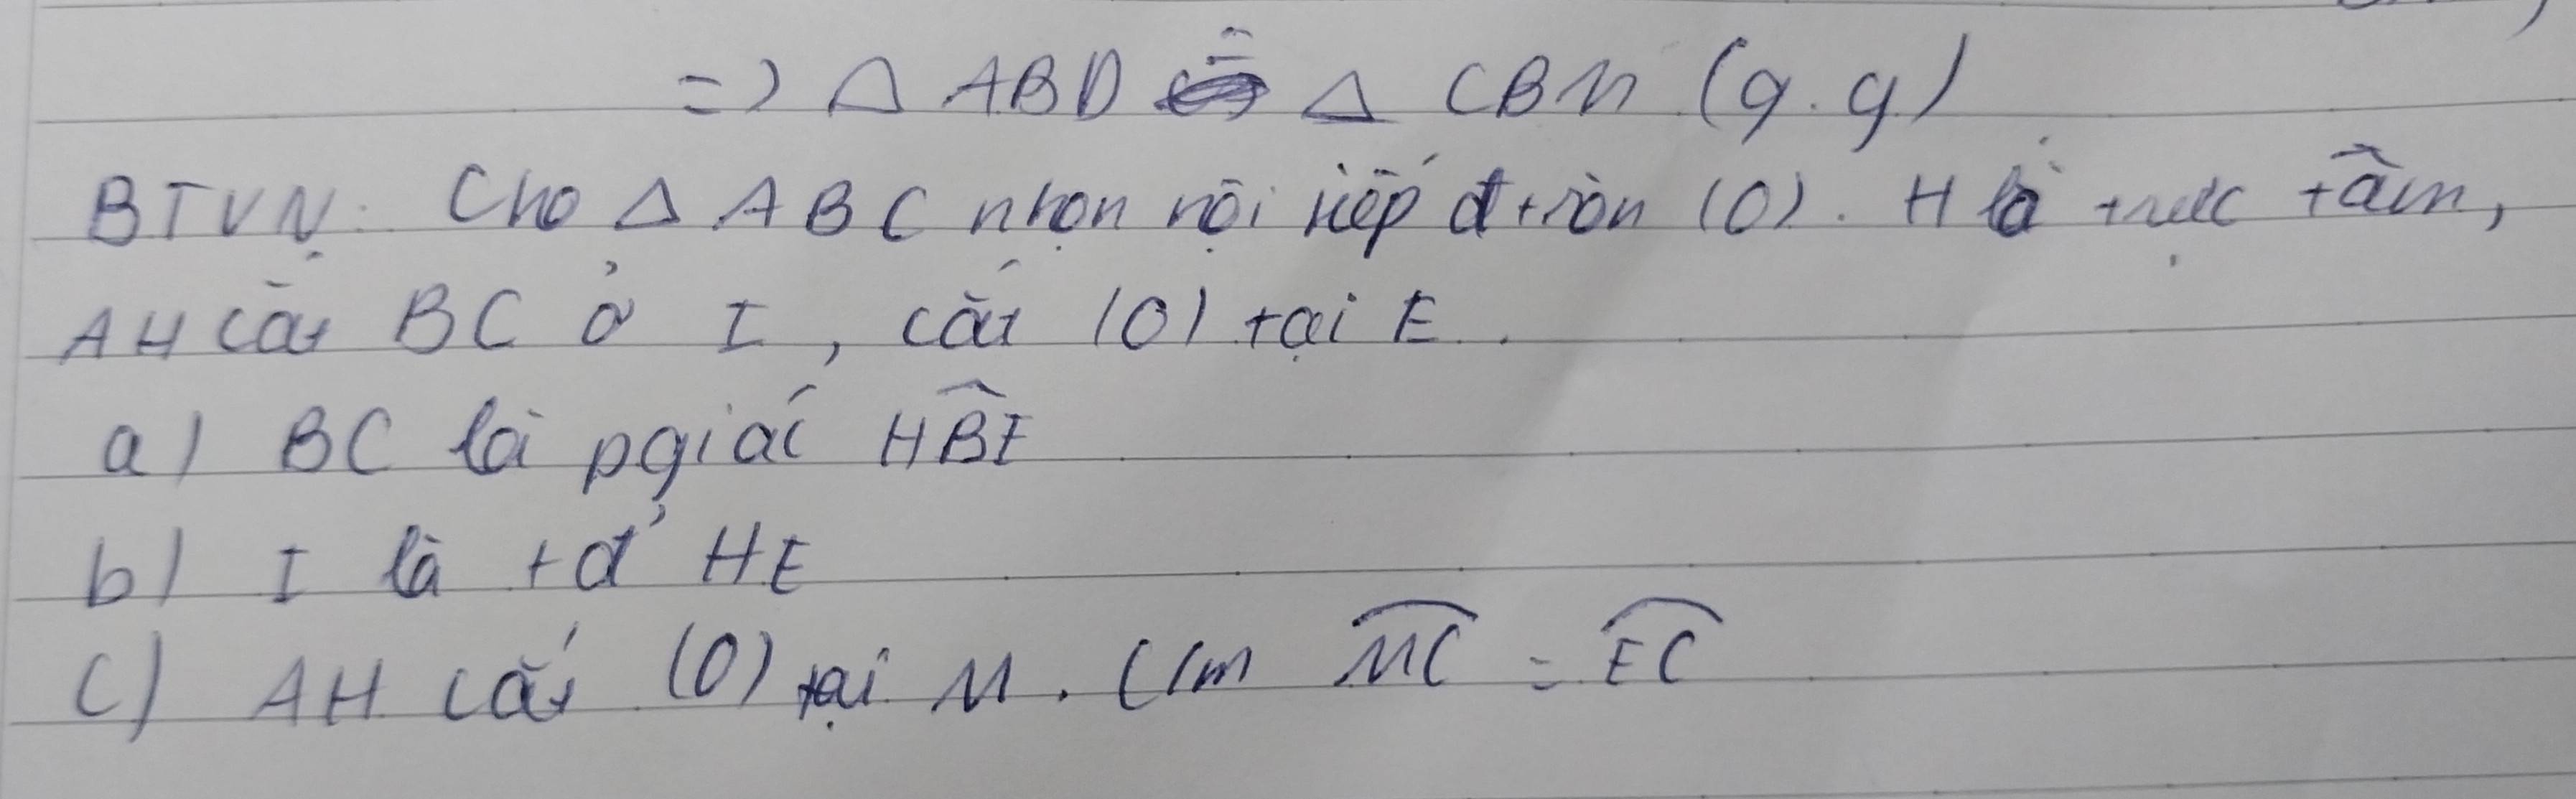 => △ ABD = △ CBM (g.g)
BTVN: Cho △ ABC nhọn nội tiếp đtròn (O). H là trực tâm,
AH cắt BC ở I, cắt (O) tại E.
a) BC là pgiác HBE
b) I là tđ' HE
c) AH cắt (O) tại M. C/m MC = EC